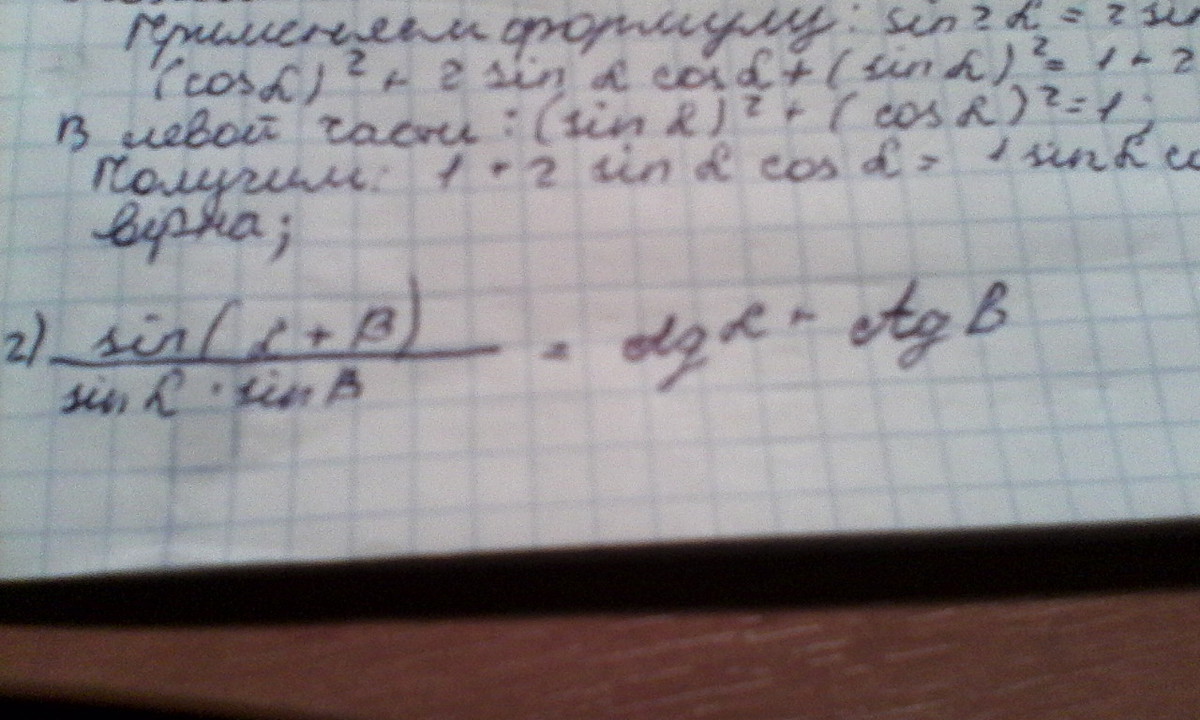 Применяем формулу: sin2α = 2 sin
(cosα)² + 2 sin α cosα + (sinα)² = 1 + 2
В левой части: (sin α)² + (cosα)² = 1;
Получим: 1 + 2 sin α cos α = 1 sinα co
верна;
г) sin(α + β) / sinα · sinβ = ctgα + ctgβ